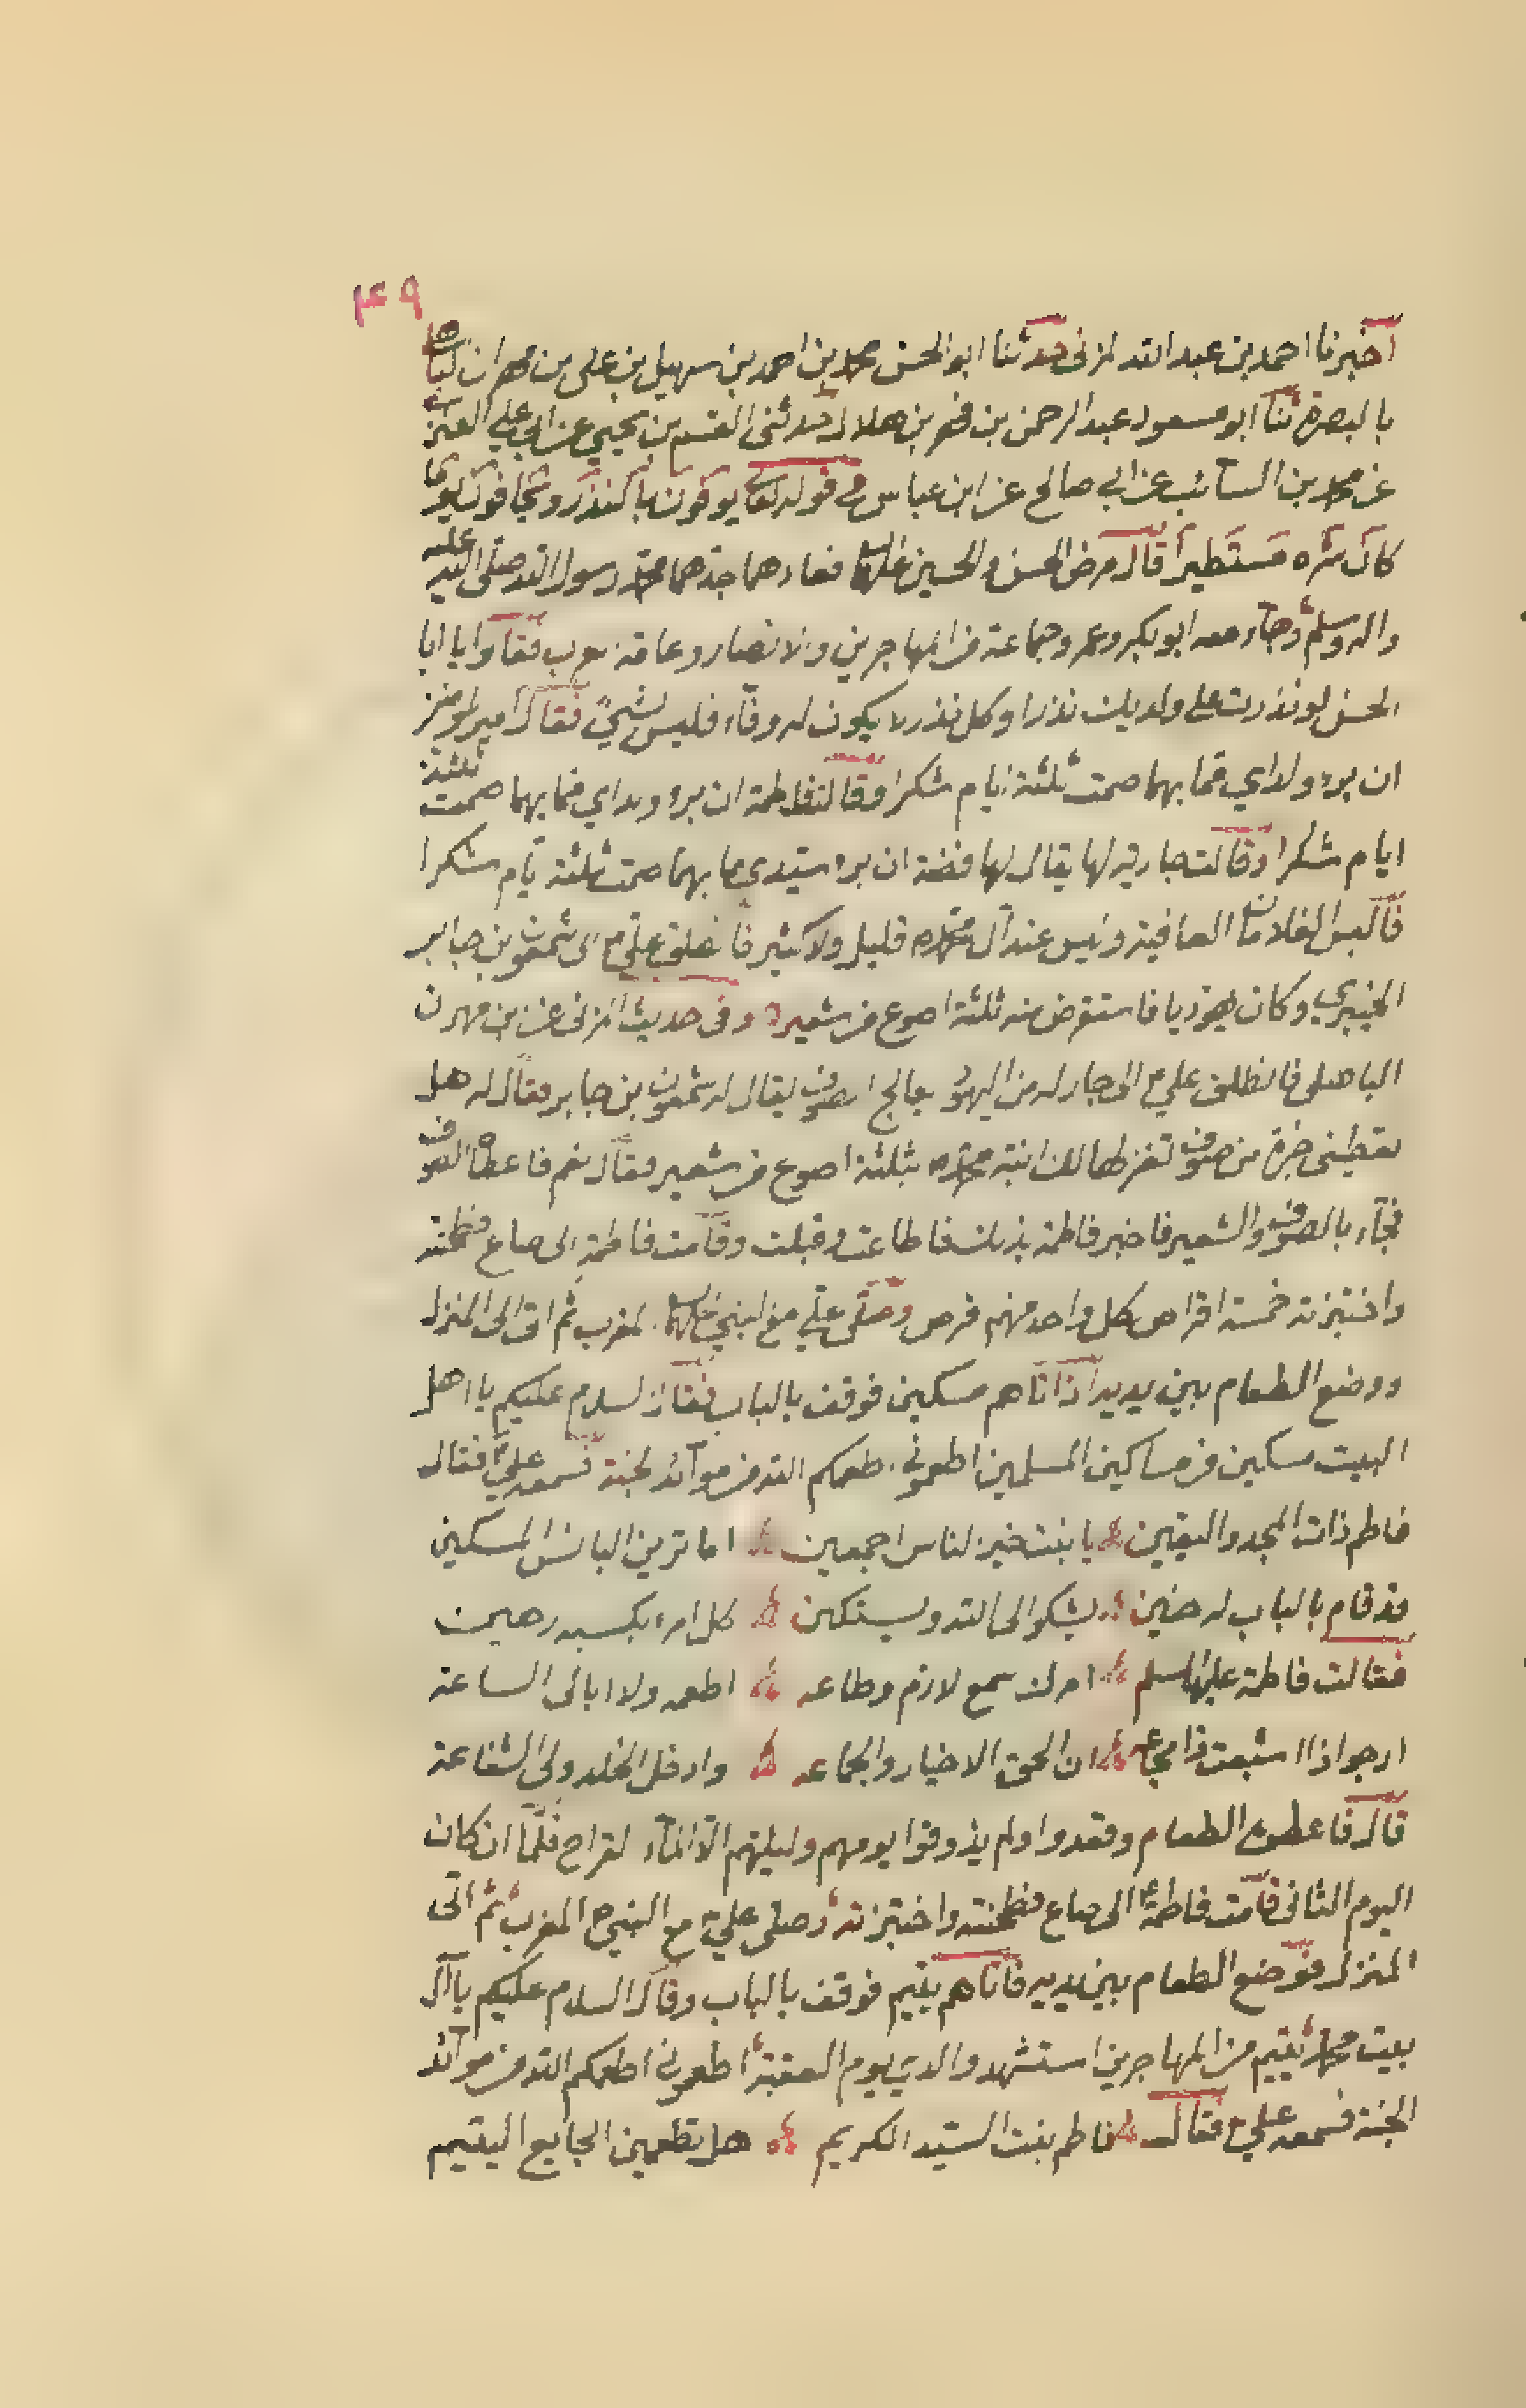 ٤٩
اخبرنا احمد بن عبد الله المزنى حدثنا ابو الحسن محمد بن احمد بن سهيل بن على بن مهران الباهلى
بالبصرة ثنا ابو مسعود عبد الرحمن بن فهر بن هلال حدثنى القسم بن يحيى عن ابى على العنزى
عن محمد بن السائب عن ابى صالح عن ابن عباس فى قوله تعالى يوفون بالنذر ويخافون يوما
كان شره مستطيرا قال مرض الحسن والحسين عليهما السلام فعادهما جدهما محمد رسول الله صلى الله عليه
واله وسلم وجاء معه ابو بكر وعمر وجماعة من المهاجرين والانصار وعامة العرب فقالوا يا ابا
الحسن لو نذرت على ولديك نذرا وكل نذر لا يكون له وفاء فليس بشىء فقال امير المؤمنين
ان برء ولداي مما بهما صمت ثلثة ايام شكرا وقالت فاطمة ان برء ولداي مما بهما صمت ثلثة
ايام شكرا وقالت جارية لها يقال لها فضة ان برء سيدى مما بهما صمت ثلثة ايام شكرا
فالبس الغلامان العافية وليس عند آل محمد ص قليل ولا كثير فانطلق على ع الى شمعون بن جابر
الخيبرى وكان يهوديا فاستقرض منه ثلثة اصوع من شعير وفى حديث المزنى عن بن مهرن
الباهلى فانطلق على ع الى جار له من اليهود يعالج الصوف يقال له شمعون بن جابر فقال له هل
تعطينى جزة من صوف تغزلها لك ابنة محمد ص بثلثة اصوع من شعير فقال نعم فاعطاه الصوف
فجاء بالصوف والشعير فاخبر فاطمة بذلك فاطاعت وقبلت وقامت فاطمة الى صاع فطحنته
واختبزته خمسة اقراص كل واحد منهم قرص وصلى على مع النبى عليهما السلام المغرب ثم اتى الى المنزل
ووضع الطعام بين يديه اذ اتاهم مسكين فوقف بالباب فقال السلام عليكم يا اهل
البيت مسكين من مساكين المسلمين اطعمونى اطعمكم الله من موائد الجنة فسمعه على ع فقال
فاطم ذات المجد واليقين يا بنت خير الناس اجمعين اما ترين البائس المسكين
قد قام بالباب له حنين يشكوا الى الله ويستكين كل امرء بكسبه رهين
فقالت فاطمة عليها السلم امرك سمع لازم وطاعه اطعمه ولا ابالى الساعة
ارجوا اذا اشبعت ذا مجاعه ان الحق الاخيار والجماعه وادخل الخلد ولى الشفاعة
قال فاعطوه الطعام وقعدوا ولم يذوقوا يومهم وليلتهم الا الماء القراح فلما ان كان
اليوم الثانى قامت فاطمة ع الى صاع فطحنته واختبزته وصلى على ع مع النبى ص المغرب ثم اتى
المنزل فوضع الطعام بين يديه فاتاهم يتيم فوقف بالباب وقال السلام عليكم يا آل
بيت محمد يتيم من المهاجرين استشهد والدي يوم العقبة اطعمونى اطعمكم الله من موائد
الجنة فسمعه على ع فقال فاطم بنت السيد الكريم هل تطعمين الجايع اليتيم